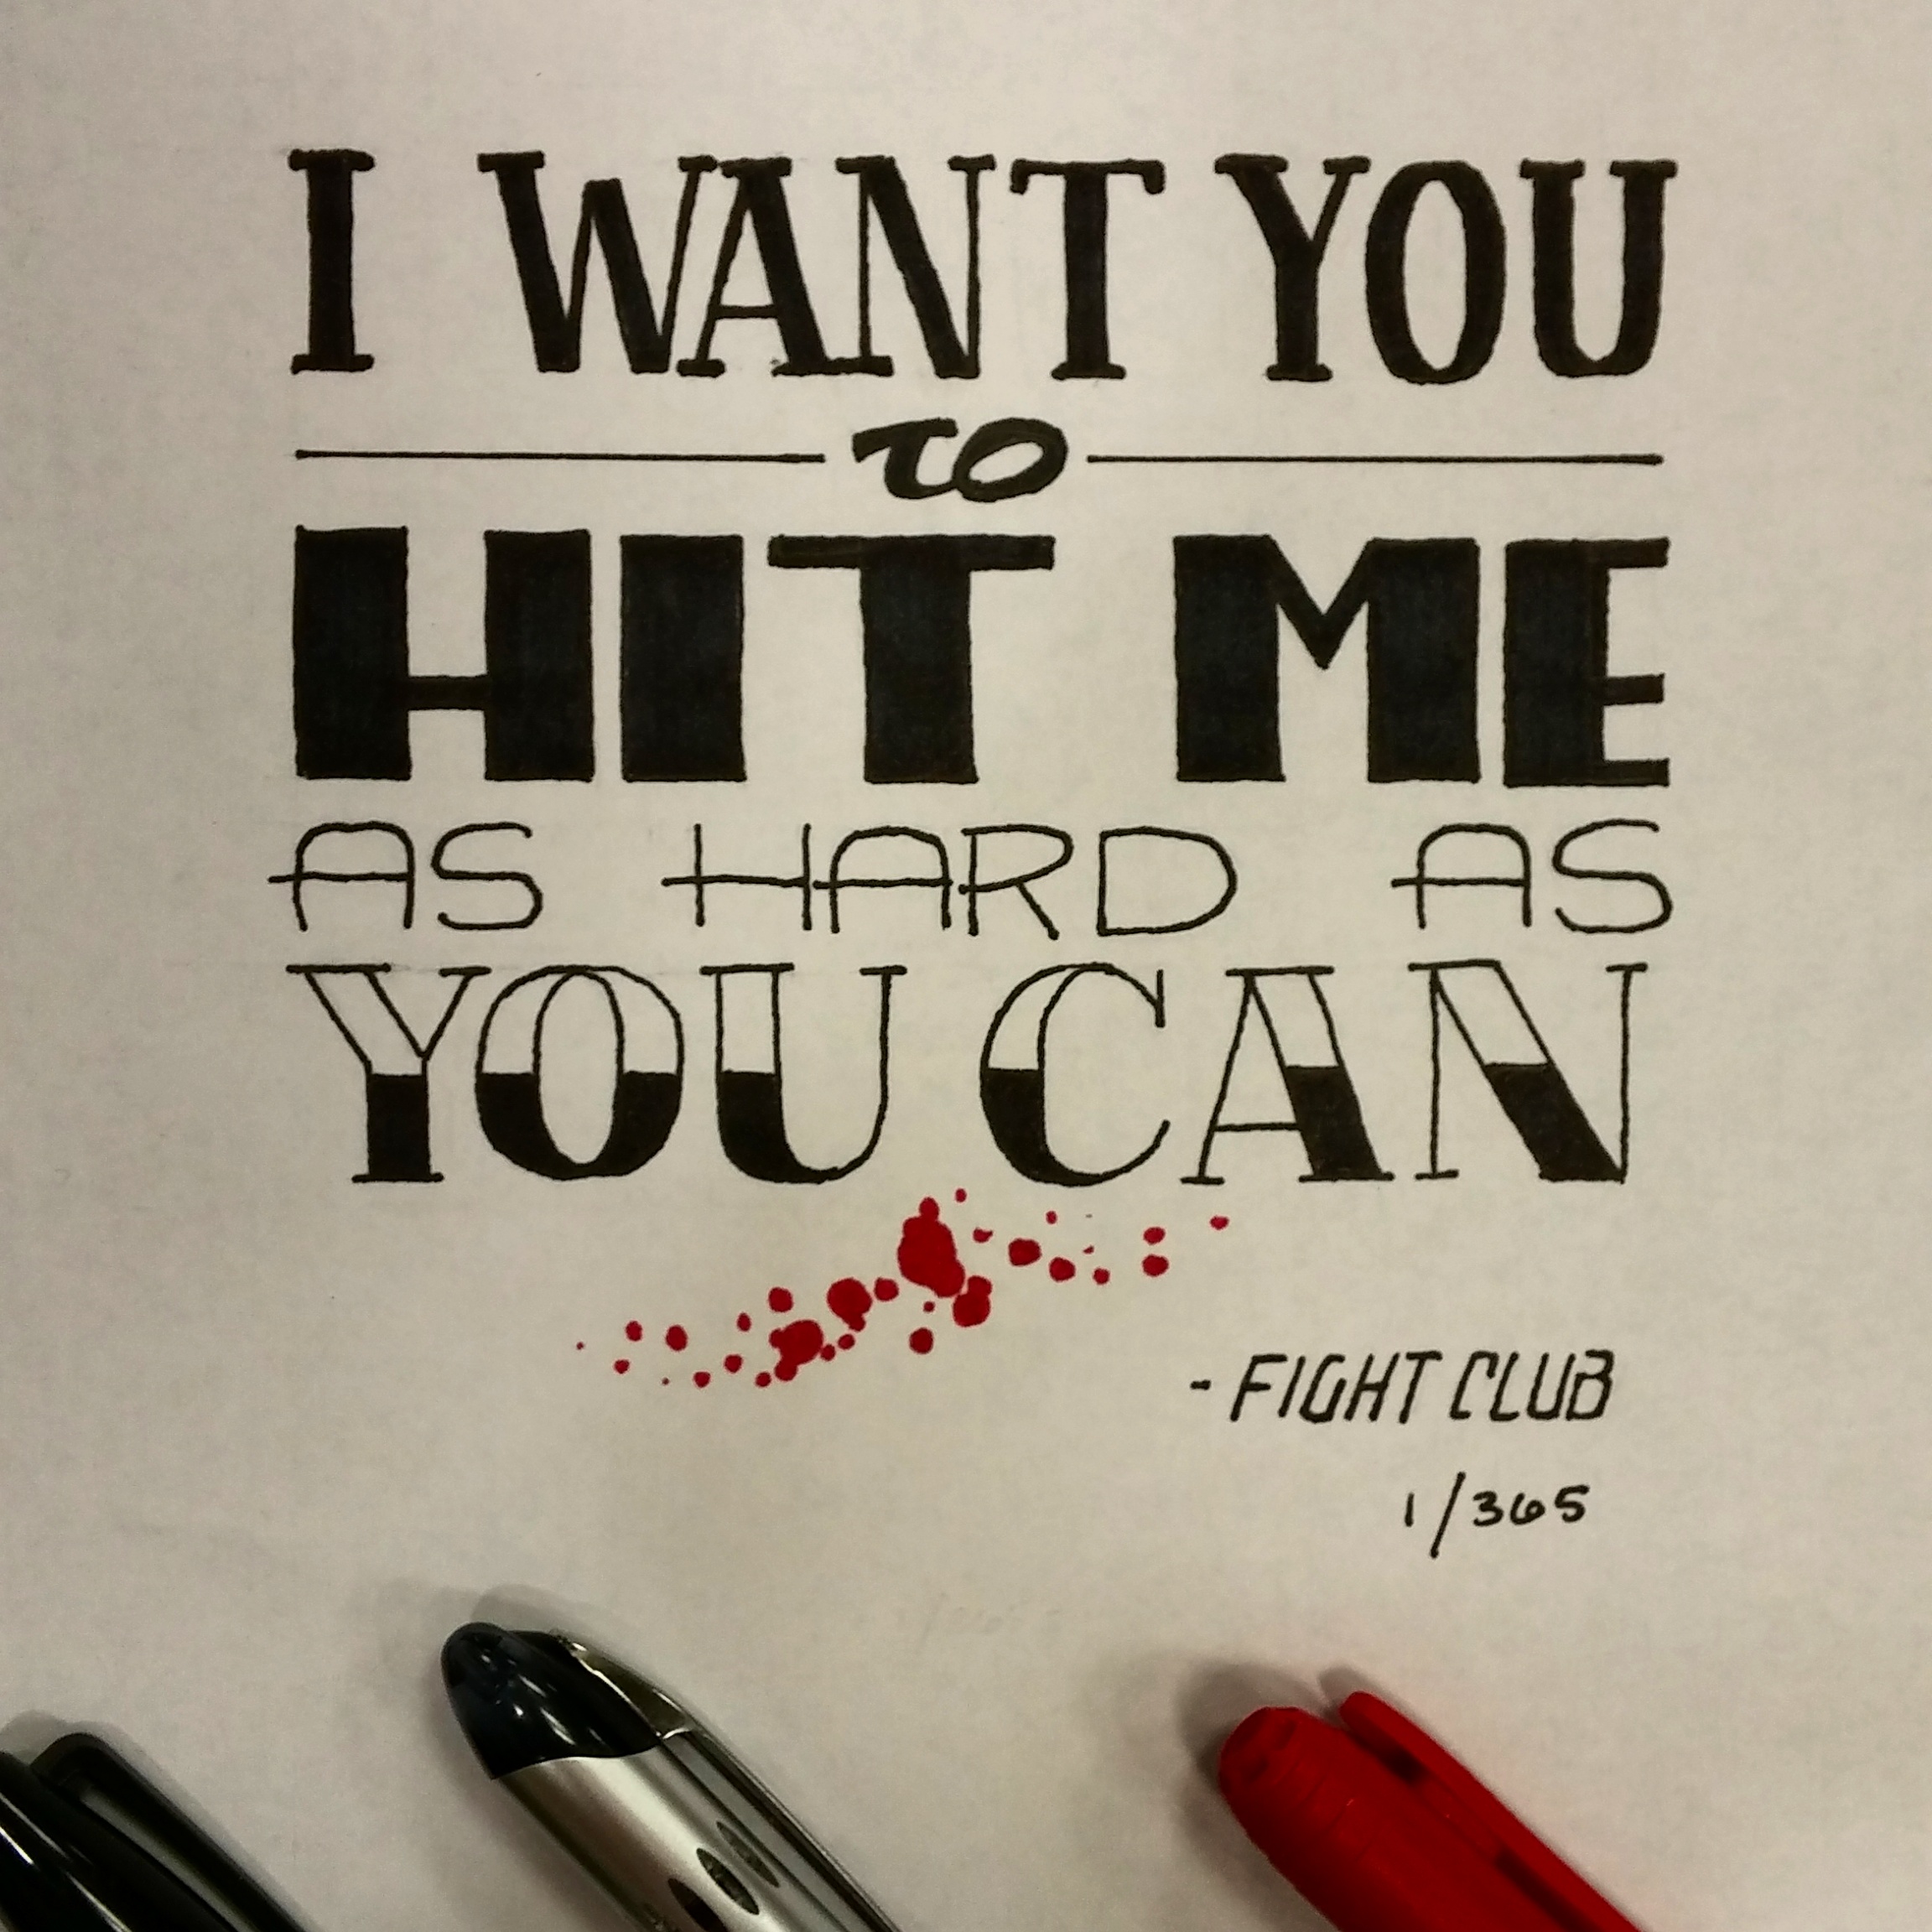 I WANT YOU
to
HIT ME
AS HARD AS
YOU CAN
- FIGHT CLUB
1/365